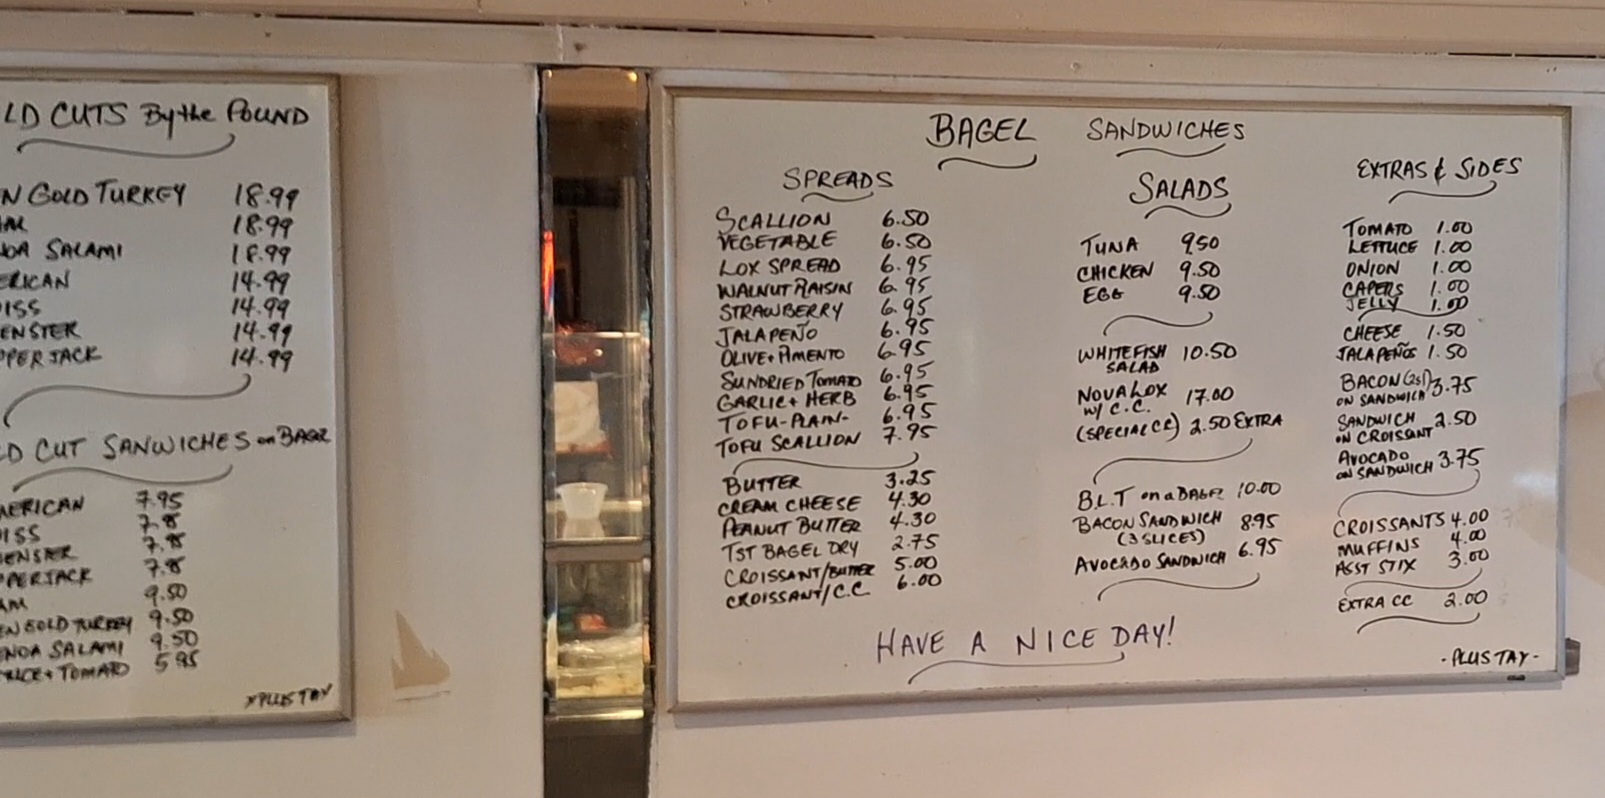 LD CUTS By the POUND
N GOLD TURKEY 18.99
AM 18.99
NOA SALAMI 18.99
ERICAN 14.99
ISS 14.99
ENSTER 14.99
PPER JACK 14.99
D CUT SANWICHES on BAGEL
MERICAN 7.95
ISS 7.95
ENSTER 7.95
PPERJACK 7.95
AM 9.50
EN GOLD TURKEY 9.50
ENOA SALAMI 9.50
TUCE + TOMATO 5.95
*PLUS TAX
BAGEL SANDWICHES
SPREADS
SCALLION 6.50
VEGETABLE 6.50
LOX SPREAD 6.95
WALNUT RAISIN 6.95
STRAWBERRY 6.95
JALAPEÑO 6.95
OLIVE + PIMENTO 6.95
SUNDRIED TOMATO 6.95
GARLIC + HERB 6.95
TOFU-PLAIN- 6.95
TOFU SCALLION 7.95
BUTTER 3.25
CREAM CHEESE 4.30
PEANUT BUTTER 4.30
TST BAGEL DRY 2.75
CROISSANT/BUTTER 5.00
CROISSANT/C.C. 6.00
SALADS
TUNA 9.50
CHICKEN 9.50
EGG 9.50
WHITEFISH 10.50
SALAD
NOVA LOX 17.00
W/ C.C.
(SPECIAL CC) 2.50 EXTRA
B.L.T on a BAGEL 10.00
BACON SANDWICH 8.95
(3 SLICES)
AVOCADO SANDWICH 6.95
EXTRAS & SIDES
TOMATO 1.00
LETTUCE 1.00
ONION 1.00
CAPERS 1.00
JELLY 1.00
CHEESE 1.50
JALAPEÑOS 1.50
BACON (2sl) 3.75
ON SANDWICH
SANDWICH 2.50
ON CROISSANT
AVOCADO 3.75
ON SANDWICH
CROISSANTS 4.00
MUFFINS 4.00
ASST STIX 3.00
EXTRA CC 2.00
HAVE A NICE DAY!
-PLUS TAX-